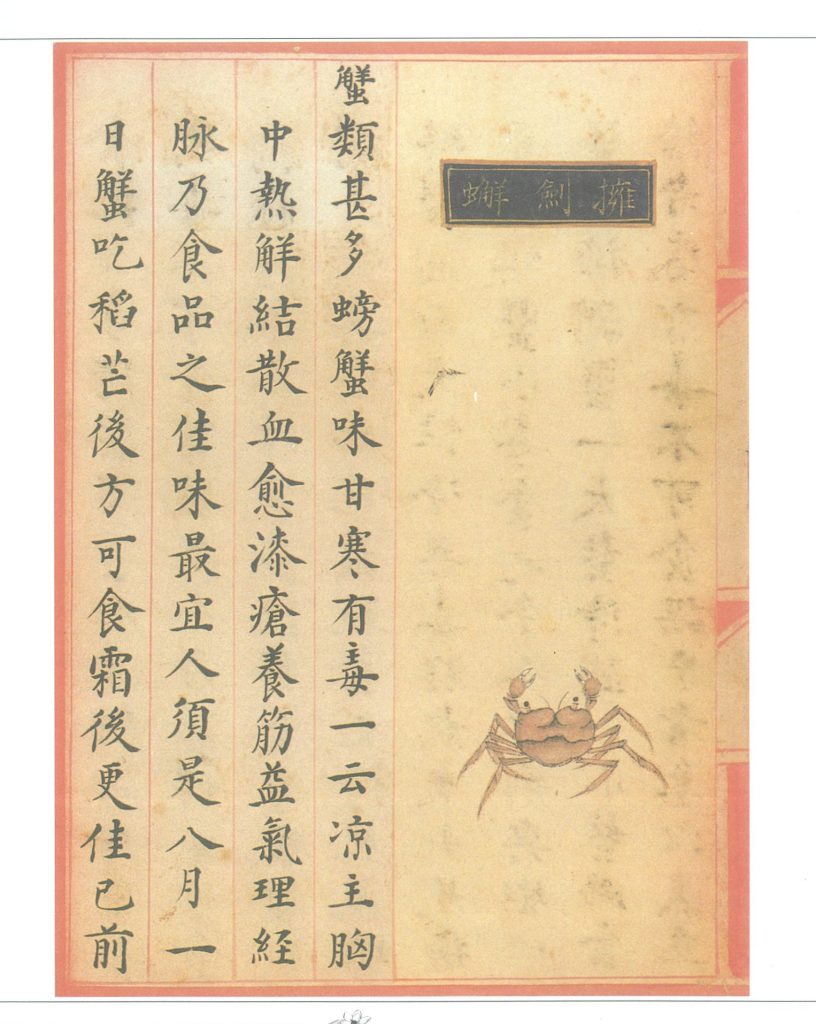 擁劍蠏
蟹類甚多螃蟹味甘寒有毒一云凉主胸
中熱解結散血愈漆瘡養筋益氣理経
脉乃食品之佳味最宜人須是八月一
日蟹吃稻芒後方可食霜後更佳已前